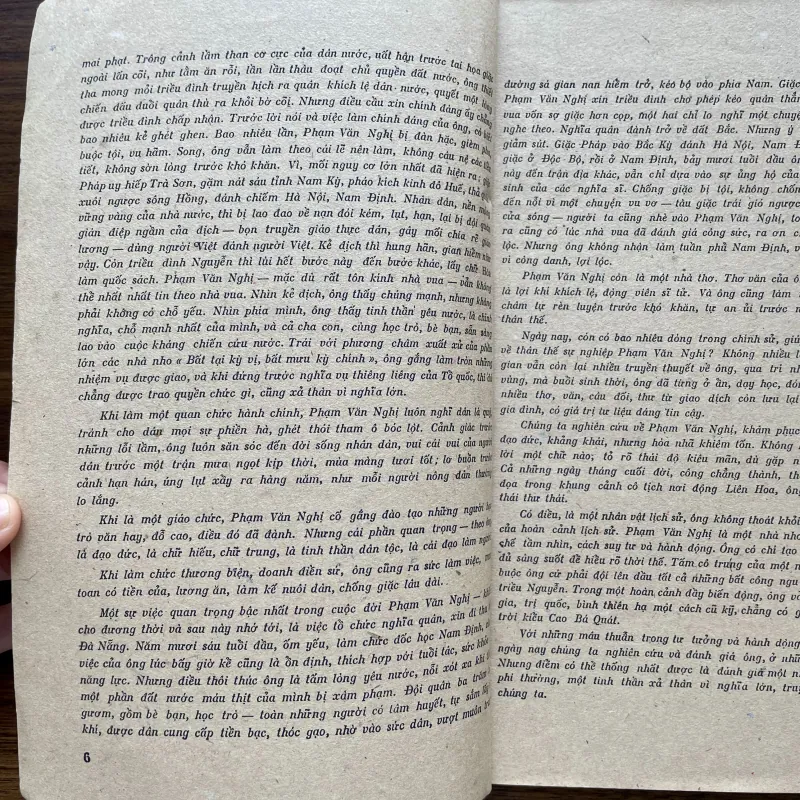 mai phạt. Trông cảnh lầm than cơ cực của dân nước, uất hận trước tai họa giặc
ngoài lấn cõi, như tằm ăn rỗi, lần lần thâu đoạt chủ quyền đất nước, ông thiết
tha mong mỏi triều đình truyền hịch ra quân khích lệ dân nước, quyết một lòng
chiến đấu đuổi quân thù ra khỏi bờ cõi. Nhưng điều cầu xin chính đáng ấy chẳng
được triều đình chấp nhận. Trước lời nói và việc làm chính đáng của ông, có biết
bao nhiêu kẻ ghét ghen. Bao nhiêu lần, Phạm Văn Nghị bị đàn hặc, gièm pha,
buộc tội, vu hãm. Song, ông vẫn làm theo cái lẽ nên làm, không câu nệ các tiểu
tiết, không sờn lòng trước khó khăn. Vì, mối nguy cơ lớn nhất đã hiện ra: giặc
Pháp uy hiếp Trà Sơn, gặm nát sáu tỉnh Nam Kỳ, pháo kích kinh đô Huế, thả quân
xuôi ngược sông Hồng, đánh chiếm Hà Nội, Nam Định. Nhân dân, nền móng
vững vàng của nhà nước, thì bị lao đao về nạn đói kém, lụt, hạn, lại bị đội quân
gián điệp ngầm của địch — bọn truyền giáo thực dân, gây mối chia rẽ giáo
lương — dùng người Việt đánh người Việt. Kẻ địch thì hung hãn, gian hiểm như
vậy. Còn triều đình Nguyễn thì lùi hết bước này đến bước khác, lấy chữ Hòa
làm quốc sách. Phạm Văn Nghị — mặc dù rất tôn kính nhà vua — vẫn không
thể nhất nhất tin theo nhà vua. Nhìn kẻ địch, ông thấy chúng mạnh, nhưng không
phải không có chỗ yếu. Nhìn phía mình, ông thấy tinh thần yêu nước, là chính
nghĩa, chỗ mạnh nhất của mình, và cả cha con, cùng học trò, bè bạn, sẵn sàng
lao vào cuộc kháng chiến cứu nước. Trái với phương châm xuất xử của phần
lớn các nhà nho « Bất tại kỳ vị, bất mưu kỳ chính », ông gắng làm tròn những
nhiệm vụ được giao, và khi đứng trước nghĩa vụ thiêng liêng của Tổ quốc, thì dù
chẳng được trao quyền chức gì, cũng xả thân vì nghĩa lớn.
Khi làm một quan chức hành chính, Phạm Văn Nghị luôn nghĩ dân là quý,
tránh cho dân mọi sự phiền hà, ghét thói tham ô bóc lột. Cảnh giác trước
những lỗi lầm, ông luôn săn sóc đến đời sống nhân dân, vui cái vui của người
dân trước một trận mưa ngọt kịp thời, mùa màng tươi tốt; lo buồn trước
cảnh hạn hán, úng lụt xảy ra hàng năm, như mỗi người nông dân thường
lo lắng.
Khi là một giáo chức, Phạm Văn Nghị cố gắng đào tạo những người học
trò văn hay, đỗ cao, điều đó đã đành. Nhưng cái phần quan trọng — theo ông
là đạo đức, là chữ hiếu, chữ trung, là tinh thần dân tộc, là cái đạo làm người.
Khi làm chức thương biện, doanh điền sứ, ông cũng ra sức làm việc, mưu
toan có tiền của, lương ăn, làm kế nuôi dân, chống giặc lâu dài.
Một sự việc quan trọng bậc nhất trong cuộc đời Phạm Văn Nghị — khiến
cho đương thời và sau này nhớ tới, là việc tổ chức nghĩa quân, xin đi vào
Đà Nẵng. Năm mươi sáu tuổi đầu, ốm yếu, làm chức đốc học Nam Định, công
việc của ông lúc bấy giờ kể cũng là ổn định, thích hợp với tuổi tác, sức khỏe,
năng lực. Nhưng điều thôi thúc ông là tấm lòng yêu nước, nỗi xót xa khi thấy
một phần đất nước máu thịt của mình bị xâm phạm. Đội quân ba trăm tay
gươm, gồm bè bạn, học trò — toàn những người có tâm huyết, tự sắm lấy vũ
khí, được dân cung cấp tiền bạc, thóc gạo, nhờ vào sức dân, vượt muôn trùng
6
đường sá gian nan hiểm trở, kéo bộ vào phía Nam. Giặc
Phạm Văn Nghị xin triều đình cho phép kéo quân thẳng
vua vốn sợ giặc hơn cọp, một hai chỉ lo nghĩ một chuyện
nghe theo. Nghĩa quân đành trở về đất Bắc. Nhưng ý
giảm sút. Giặc Pháp vào Bắc Kỳ đánh Hà Nội, Nam Đ
giặc ở Độc Bộ, rồi ở Nam Định, bảy mươi tuổi đầu ông
này đến trận địa khác, vẫn chỉ dựa vào sự ủng hộ của
sinh của các nghĩa sĩ. Chống giặc bị tội, không chống
đến nỗi vì một chuyện vu vơ — tàu giặc trái gió ngược
của sông — người ta cũng nhè vào Phạm Văn Nghị, to
ra cũng có lúc nhà vua đã đánh giá công sức, ra ơn ch
lộc. Nhưng ông không nhận làm tuần phủ Nam Định, v
vì công danh, lợi lộc.
Phạm Văn Nghị còn là một nhà thơ. Thơ văn của ông
là lợi khí khích lệ, động viên sĩ tử. Và ông cũng làm
châm tự rèn luyện trước khó khăn, tự an ủi trước n
thân thế.
Ngày nay, còn có bao nhiêu dòng trong chính sử, giản
về thân thế sự nghiệp Phạm Văn Nghị? Không nhiều l
gian vẫn còn lại nhiều truyền thuyết về ông, qua trí nh
vùng, mà buổi sinh thời, ông đã từng ở ẩn, dạy học, đón
nhiều thơ, văn, câu đối, thư từ giao dịch còn lưu lại
gia đình, có giá trị tư liệu đáng tin cậy.
Chúng ta nghiên cứu về Phạm Văn Nghị, khâm phục
đạo đức, khẳng khái, nhưng hòa nhã khiêm tốn. Không
lời một chữ nào; tỏ rõ thái độ kiêu mãn, dù gặp n
Cả những ngày tháng cuối đời, công chẳng thành, th
dọa trong khung cảnh cô tịch nơi động Liên Hoa, ông
thái thư thái.
Có điều, là một nhân vật lịch sử, ông không thoát khỏi
của hoàn cảnh lịch sử. Phạm Văn Nghị là một nhà nho
chế tầm nhìn, cách suy tư và hành động. Ông có chỉ tạo
đủ sáng suốt để hiểu rõ thời thế. Tấm cô trung của một n
buộc ông cứ phải đội lên đầu tất cả những bất công ngu
triều Nguyễn. Trong một hoàn cảnh đầy biến động, ông v
gia, trị quốc, bình thiên hạ một cách cũ kỹ, chẳng có g
trời kiểu Cao Bá Quát.
Với những mâu thuẫn trong tư tưởng và hành động
ngày nay chúng ta nghiên cứu và đánh giá ông, ở nh
Nhưng điểm có thể thống nhất được là đánh giá một n
phi thường, một tinh thần xả thân vì nghĩa lớn, tru
chúng ta.